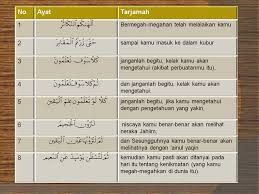 No Ayat Tarjamah
1 أَلْهَىٰكُمُ ٱلتَّكَاثُرُ Bermegah-megahan telah melalaikan kamu
2 حَتَّىٰ زُرْتُمُ ٱلْمَقَابِرَ sampai kamu masuk ke dalam kubur
3 كَلَّا سَوْفَ تَعْلَمُونَ janganlah begitu, kelak kamu akan
mengetahui (akibat perbuatanmu itu),
4 ثُمَّ كَلَّا سَوْفَ تَعْلَمُونَ dan janganlah begitu, kelak kamu akan
mengetahui.
5 كَلَّا لَوْ تَعْلَمُونَ عِلْمَ ٱلْيَقِينِ janganlah begitu, jika kamu mengetahui
dengan pengetahuan yang yakin,
6 لَتَرَوُنَّ ٱلْجَحِيمَ niscaya kamu benar-benar akan melihat
neraka Jahiim,
7 ثُمَّ لَتَرَوُنَّهَا عَيْنَ ٱلْيَقِينِ dan Sesungguhnya kamu benar-benar akan
melihatnya dengan 'ainul yaqin
8 ثُمَّ لَتُسْـَٔلُنَّ يَوْمَئِذٍ عَنِ ٱلنَّعِيمِ kemudian kamu pasti akan ditanyai pada
hari itu tentang kenikmatan (yang kamu
megah-megahkan di dunia itu).